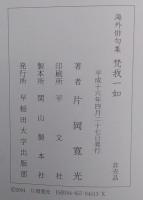 海外俳句集 梵我一如 非売品
平成十六年四月二十七日発行
著者 片岡寛光
印刷所 平文社
製本所 関山製本社
発行所 早稲田大学出版部